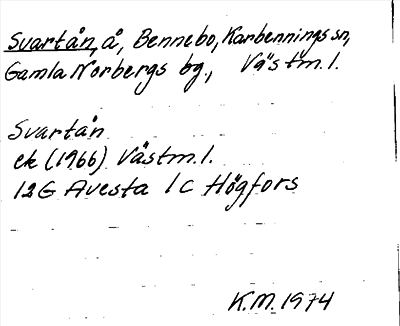 Svartån, å, Bennebo, Karbennings sn,
Gamla Norbergs bg., Västm. l.
Svartån
ek (1966) Västm. l.
12G Avesta 1 c Högfors
K.M. 1974